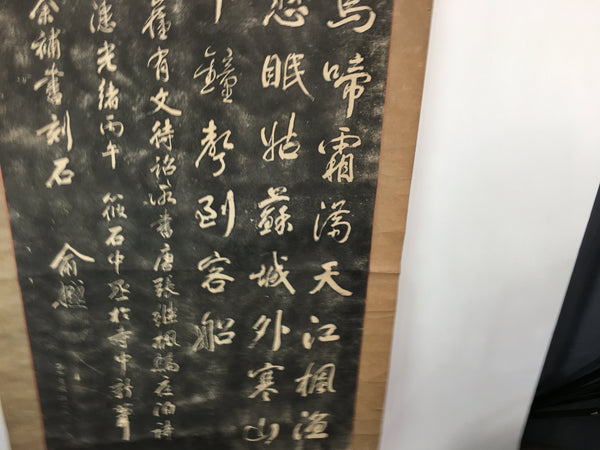 烏啼霜滿天江楓漁
愁眠姑蘇城外寒山
半鐘聲到客船
舊有文待詔所書唐張繼楓橋夜泊詩
漶光緒丙午筱石中丞於寺中新葺
余補書刻石 俞樾